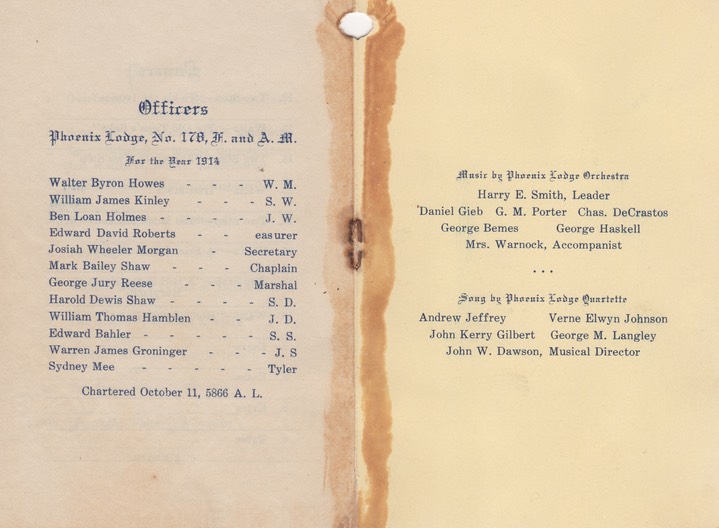 Officers
Phoenix Lodge, No. 178, F. and A. M.
For the Year 1914
Walter Byron Howes - - - W. M.
William James Kinley - - - S. W.
Ben Loan Holmes - - - - J. W.
Edward David Roberts - - easurer
Josiah Wheeler Morgan - Secretary
Mark Bailey Shaw - - - Chaplain
George Jury Reese - - - Marshal
Harold Dewis Shaw - - - - S. D.
William Thomas Hamblen - - J. D.
Edward Bahler - - - - - S. S.
Warren James Groninger - - - J. S
Sydney Mee - - - - - Tyler
Chartered October 11, 5866 A. L.
Music by Phoenix Lodge Orchestra
Harry E. Smith, Leader
Daniel Gieb G. M. Porter Chas. DeCrastos
George Bemes George Haskell
Mrs. Warnock, Accompanist
• • •
Song by Phoenix Lodge Quartette
Andrew Jeffrey Verne Elwyn Johnson
John Kerry Gilbert George M. Langley
John W. Dawson, Musical Director